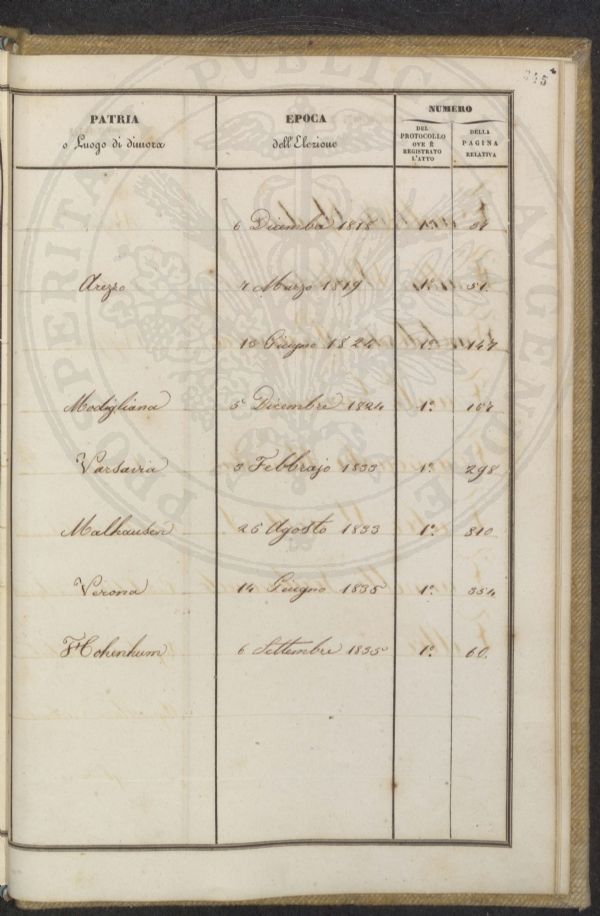 245
PATRIA
o Luogo di dimora
EPOCA
dell'Elezione
NUMERO
DEL PROTOCOLLO OVE È REGISTRATO L'ATTO
DELLA PAGINA RELATIVA
6 Dicembre 1818 1º
Arezzo 7 Marzo 1819 1º 51.
13 Giugno 1824 1º 147
Modigliana 5 Dicembre 1824 1º. 157
Varsavia 3 Febbrajo 1833 1º. 298
Malhausen 26 Agosto 1833 1º. 310
Verona 14 Giugno 1835 1º. 354
Hohenheim 6 Settembre 1835 1º. 60.
PROSPERITATI PUBLICAE AUGENDAE